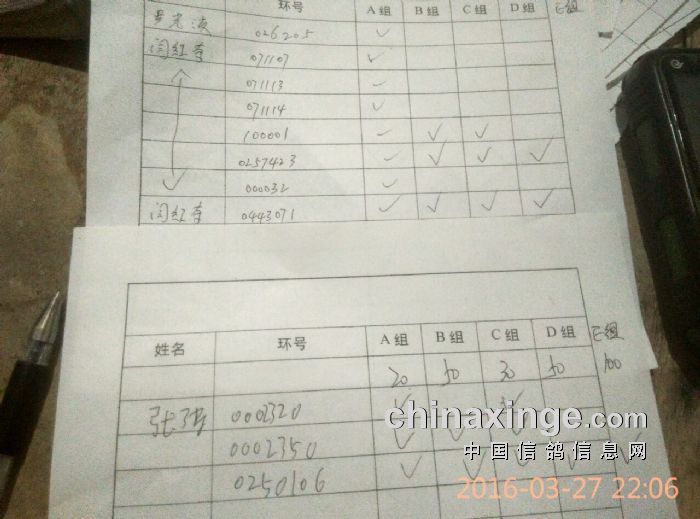 环号 A 组 B 组 C 组 D 组 E组
026205 ✓
闫红奇 071107 ✓
071113 ✓
071114 ✓
100001 ✓ ✓ ✓
0257423 ✓ ✓ ✓ ✓
000032 ✓
闫红奇 0443071 ✓ ✓ ✓ ✓
姓名 环号 A 组 B 组 C 组 D 组 E组
20 50 30 50 100
0002320 ✓ ✓
0002350 ✓ ✓
0250106 ✓ ✓ ✓ ✓ ✓
chinaxinge.com
中国信鸽信息网
2016-03-27 22:06